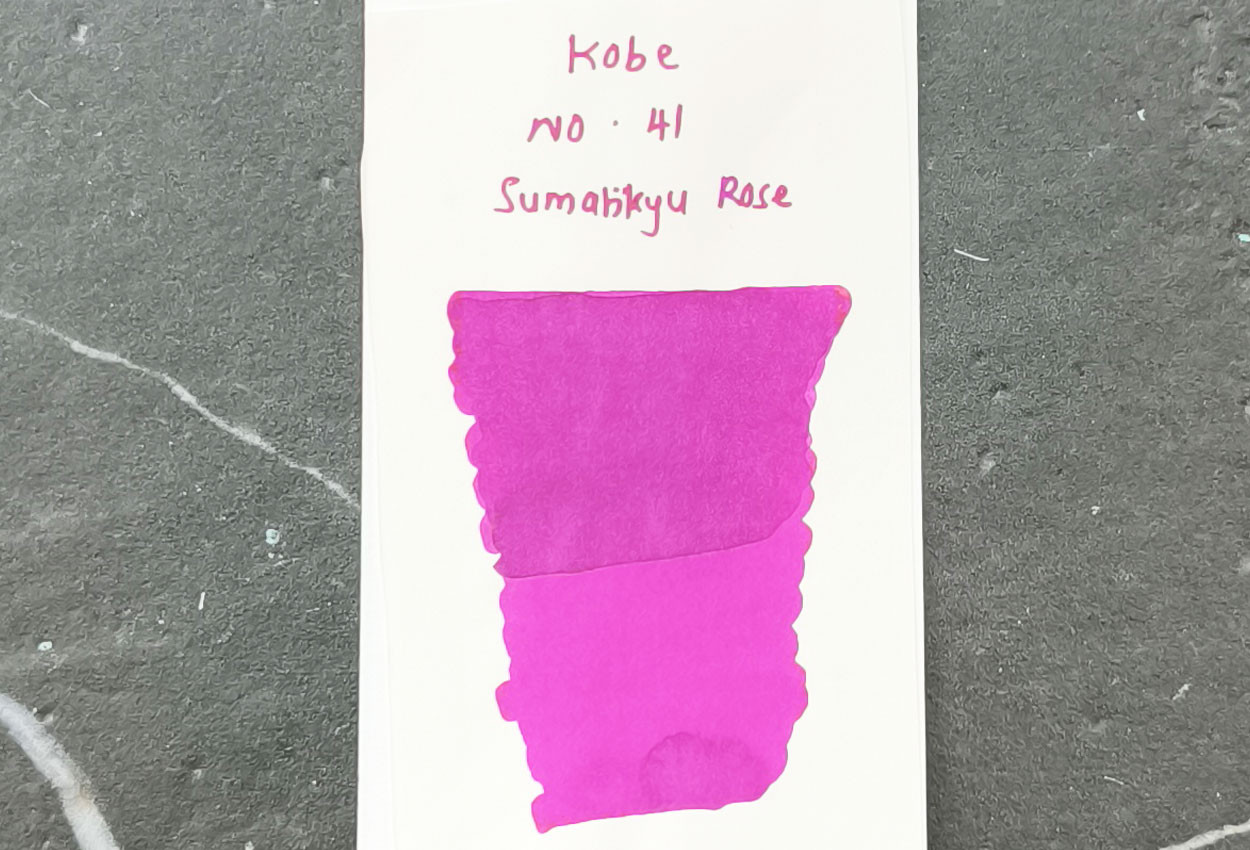 Kobe
NO · 41
Sumarikyu Rose